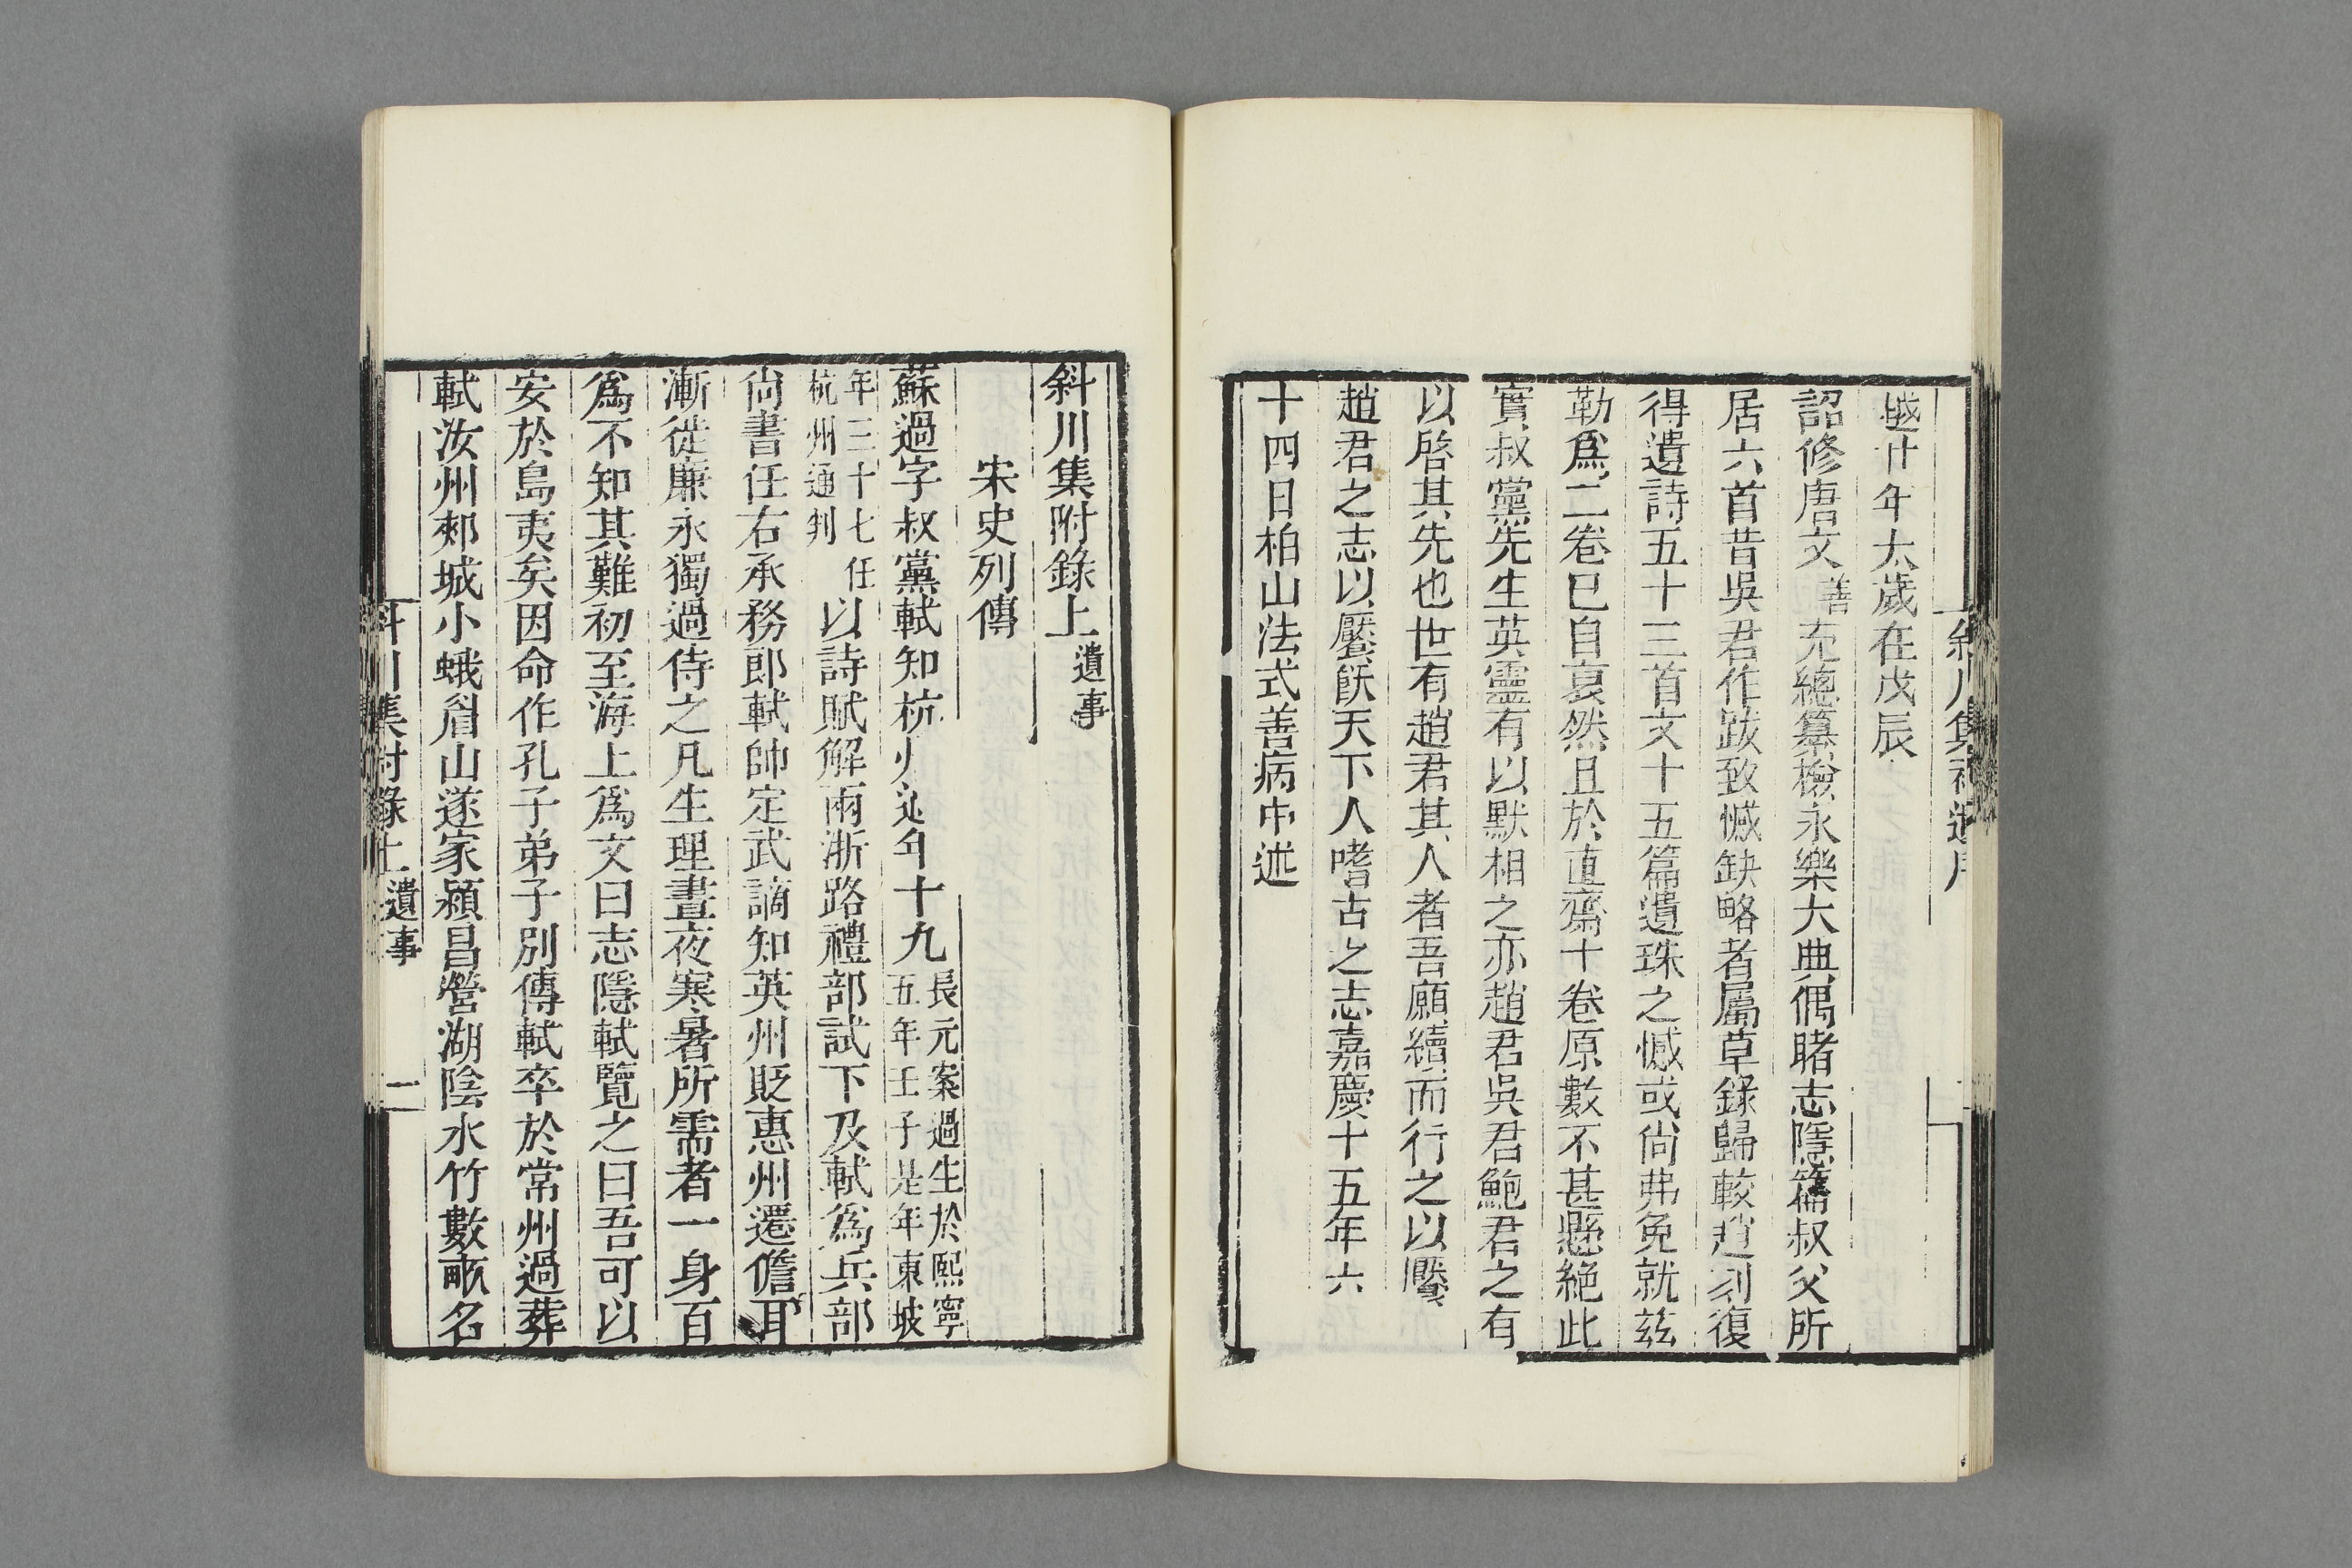 越廿年太歲在戊辰
詔修唐文善充總纂檢永樂大典偶睹志隱篇叔父所
居六首昔吳君作跋致憾缺略者屬草錄歸較趙刻復
得遺詩五十三首文十五篇遺珠之憾或尙弗免就玆
勒爲二卷已自裒然且於直齋十卷原數不甚懸絕此
實叔黨先生英靈有以默相之亦趙君吳君鮑君之有
以啓其先也世有趙君其人者吾願續而行之以饜
趙君之志以饜飫天下人嗜古之志嘉慶十五年六
十四日柏山法式善病中述
斜川集附錄上遺事
宋史列傳
蘇過字叔黨軾知杭州過年十九長元案過生於熙寧
五年壬子是年東坡
年三十七任
杭州通判
以詩賦解兩浙路禮部試下及軾爲兵部
尙書任右承務郎軾帥定武謫知英州貶惠州遷儋耳
漸徙廉永獨過侍之凡生理晝夜寒暑所需者一身百
爲不知其難初至海上爲文曰志隱軾覽之曰吾可以
安於島夷矣因命作孔子弟子別傳軾卒於常州過葬
軾汝州郟城小蛾眉山遂家潁昌營湖陰水竹數畝名
斜川集附錄上遺事 一